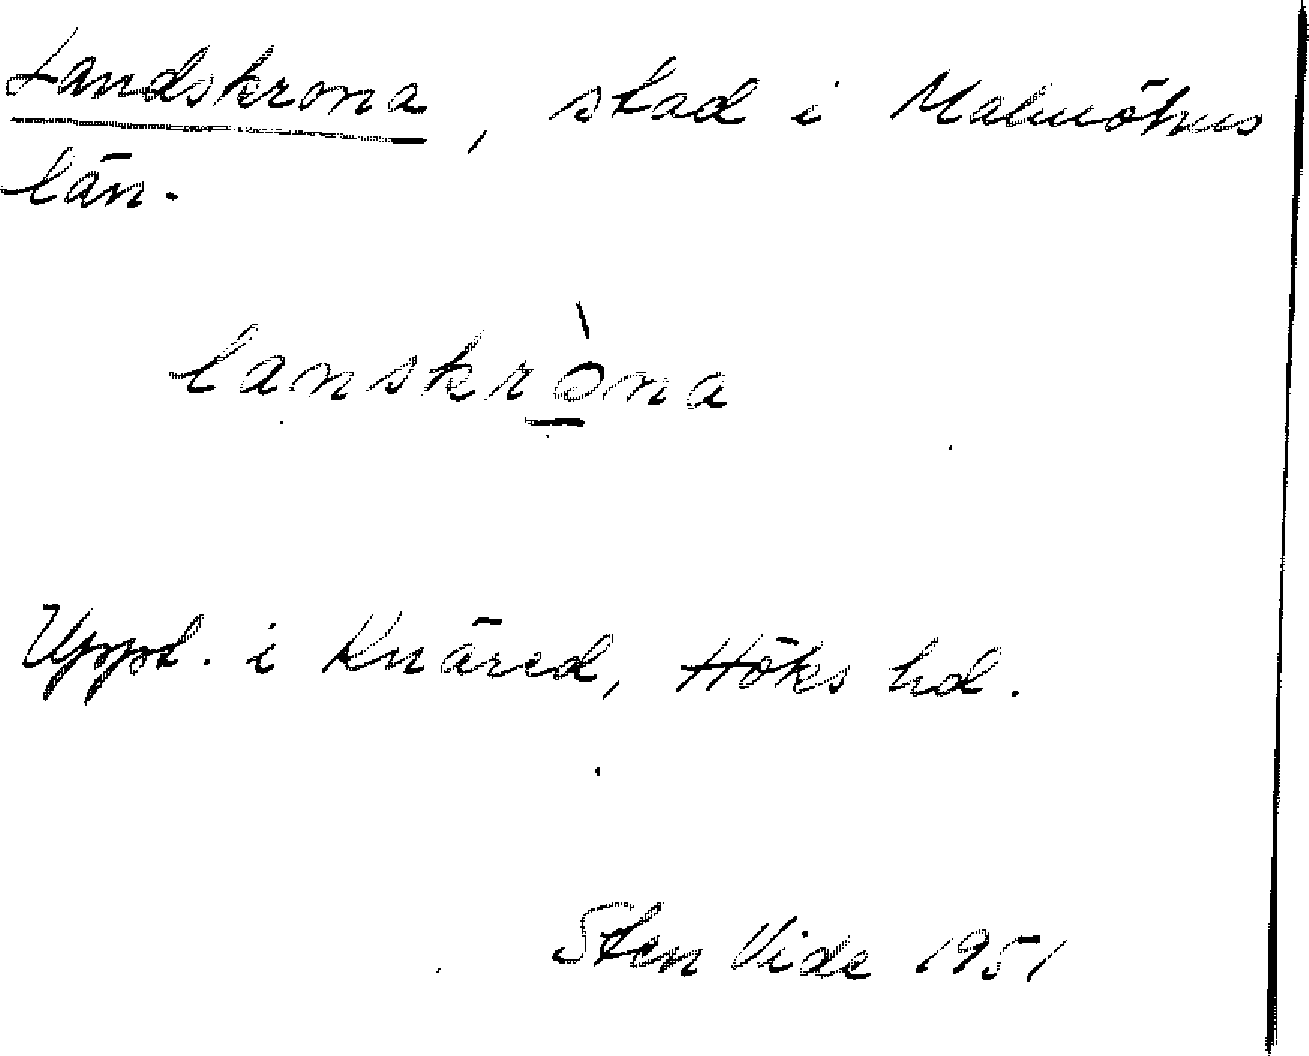 Landskrona, stad i Malmöhus
län.
lanskròna
Uppt. i Knäred, Höks hd.
Sten Vide 1951